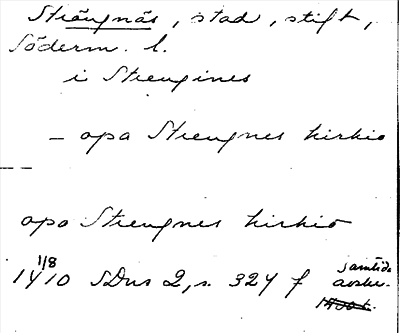 Strängnäs, stad, stift,
Söderm. l.
i Strengines
- opa Strengnes kirkio
opa Strengnes kirkio
1/8
1410 SDns 2, s. 324 f samtida
avskr.